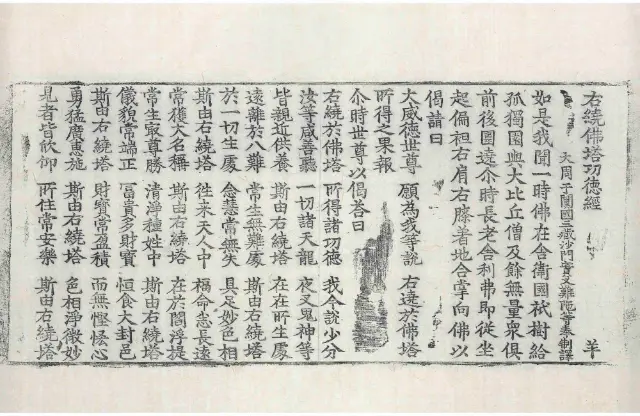 右繞佛塔功德經 羊
大周于闐國三藏沙門實叉難陀等奉制譯
如是我聞一時佛在舍衛國祇樹給
孤獨園與大比丘僧及餘無量衆俱
前後圍遶尒時長老舍利弗即從坐
起偏袒右肩右膝著地合掌向佛以
偈請曰
大威德世尊 願為我等說 右遶於佛塔
所得之果報
尒時世尊以偈答曰
右繞於佛塔 所得諸功德 我今說少分
汝等咸善聽 一切諸天龍 夜叉鬼神等
皆親近供養 斯由右繞塔 在在所生處
遠離於八難 常生無難處 斯由右繞塔
於一切生處 念慧常無失 具足妙色相
斯由右繞塔 往來天人中 福命悉長遠
常獲大名稱 斯由右繞塔 在於閻浮提
常生最尊勝 清淨種姓中 斯由右繞塔
儀貌常端正 富貴多財寶 恒食大封邑
斯由右繞塔 財寶常盈積 而無慳悋心
勇猛廣惠施 斯由右繞塔 色相淨微妙
見者皆欣仰 所住常安樂 斯由右繞塔